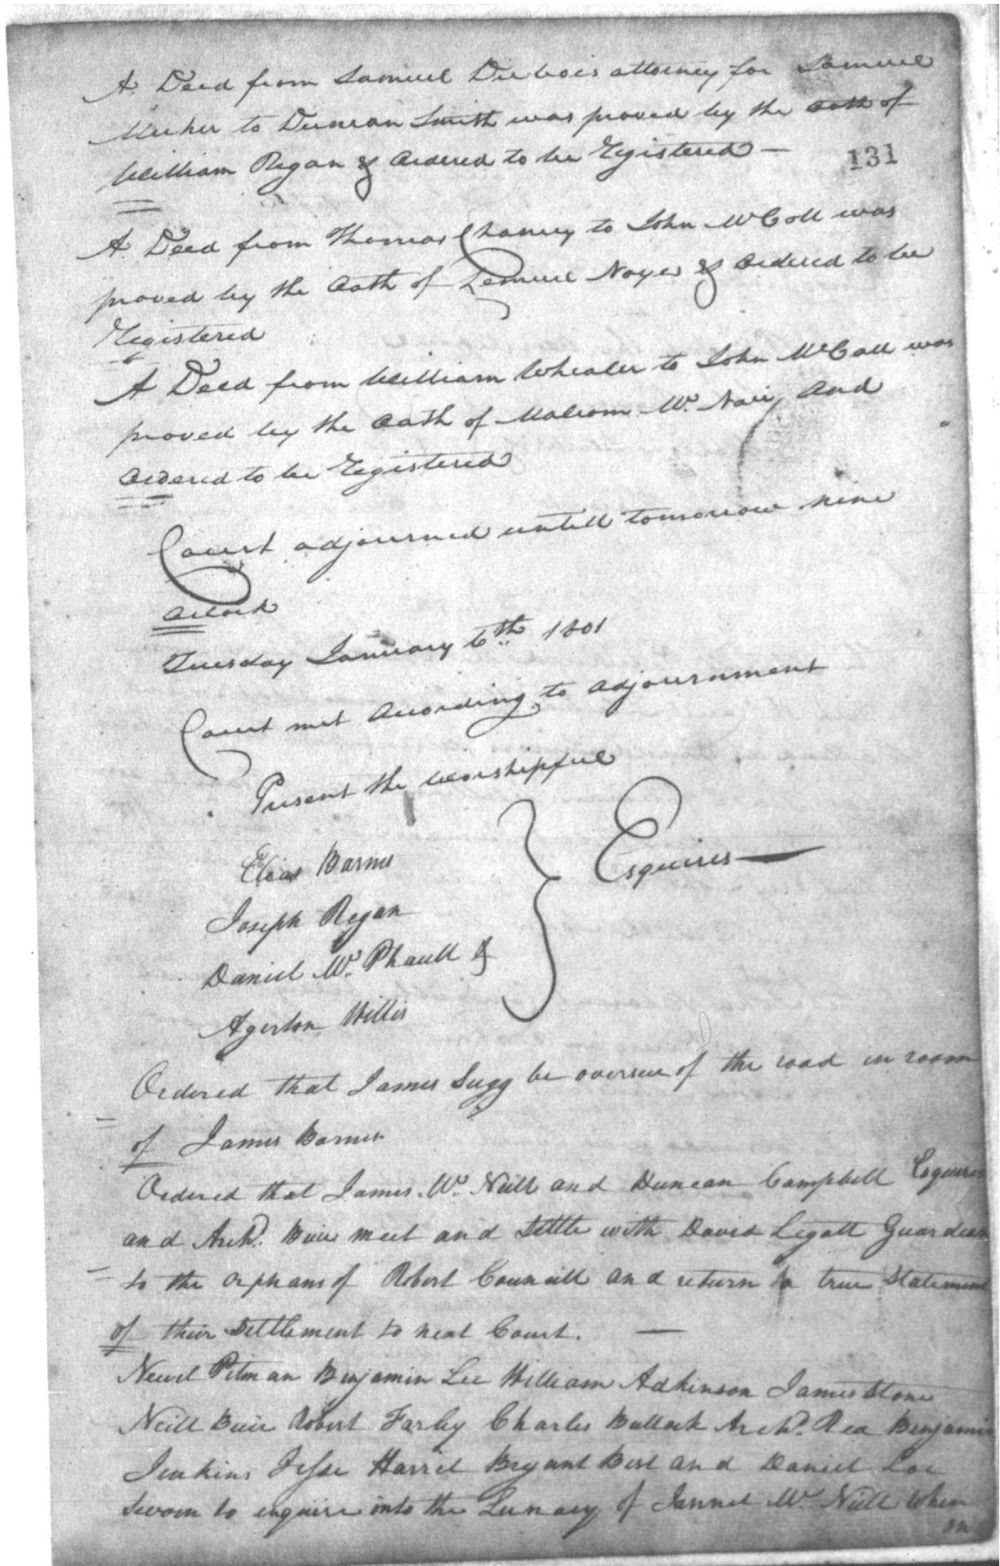 A Deed from Samuel Dubois attorney for Samuel
Meeker to Duncan Smith was proved by the oath of
William Regan & Ordered to be Registered —
131
A Deed from Thomas Chaney to John McColl was
proved by the Oath of Lemuel Noyes & Ordered to be
Registered
A Deed from William Whealer to John McCall was
proved by the Oath of Malcom Mc. Nair, And
Ordered to be Registered
Court adjourned untill tomorrow nine
Oclock
Tuesday January 6th 1801
Court met According to Adjournment
Present the Worshipful
Elias Barnes
Joseph Regan
Daniel Mc. Phaull &
Agerton Willis
Esquires —
Ordered that James Sugg be overseer of the road in room
of James Barnes
Ordered that James Mc. Neill and Duncan Campbell Esquires
and Archd. Buie meet and Settle with David Legatt Guardian
to the orphans of Robert Councill and return a true Statement
of their Settlement to next Court. —
Newel Pitman Benjamin Lee William Adkinson James Stone
Neill Buie Robert Farley Charles Bullock Archd. Rea Benjamin
Jenkins Jesse Harrel Bryant Best and Daniel Lee
Sworn to enquire into the Lunacy of Jennet Mc. Neill When
on